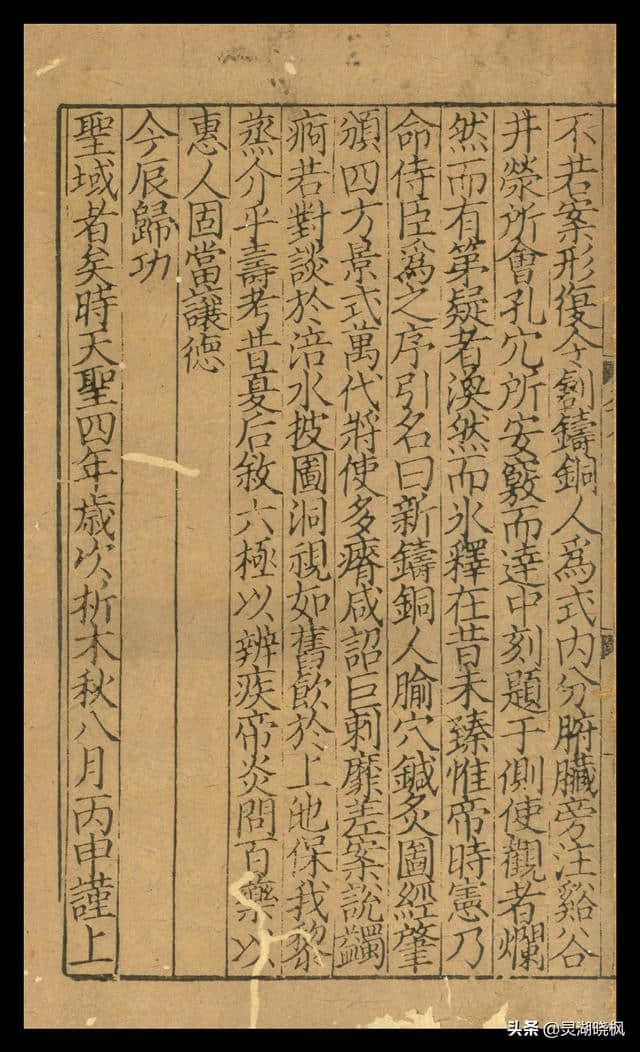 不若案形復令創鑄銅人爲式内分腑臟旁注谿谷
井滎所會孔穴所安竅而達中刻題于側使觀者爛
然而有第疑者渙然而氷釋在昔未臻惟帝時憲乃
命侍臣爲之序引名曰新鑄銅人腧穴鍼灸圖經肇
頒四方景式萬代將使多瘠咸詔巨刺靡差案說蠲
痾若對談於涪水披圖洞視如舊飲於上池保我黎
蒸介乎壽考昔夏后敘六極以辨疾帝炎問百藥以
惠人固當讓德
今辰歸功
聖域者矣時天聖四年歲次析木秋八月丙申謹上
头条 @灵湖晓枫